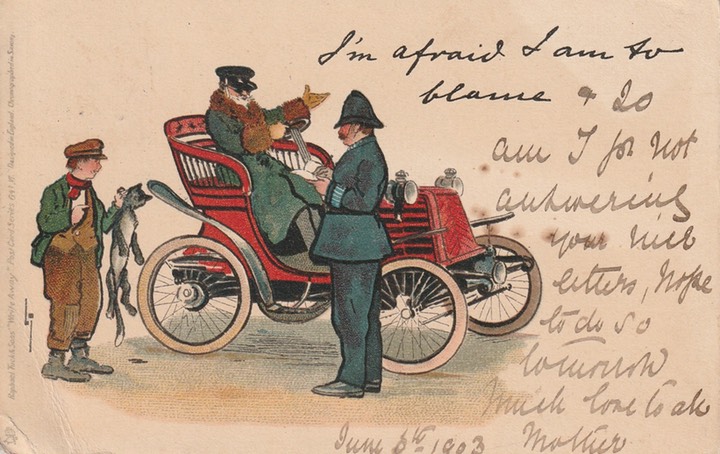 I'm afraid I am to
blame & so
am I for not
answering
your nice
letters, hope
to do so
tomorrow
Much love to all
June 5th 1903 Mother
Raphael Tuck & Sons' "Write Away" Post Card Series 6491 III. Designed in England. Chromographed in Saxony